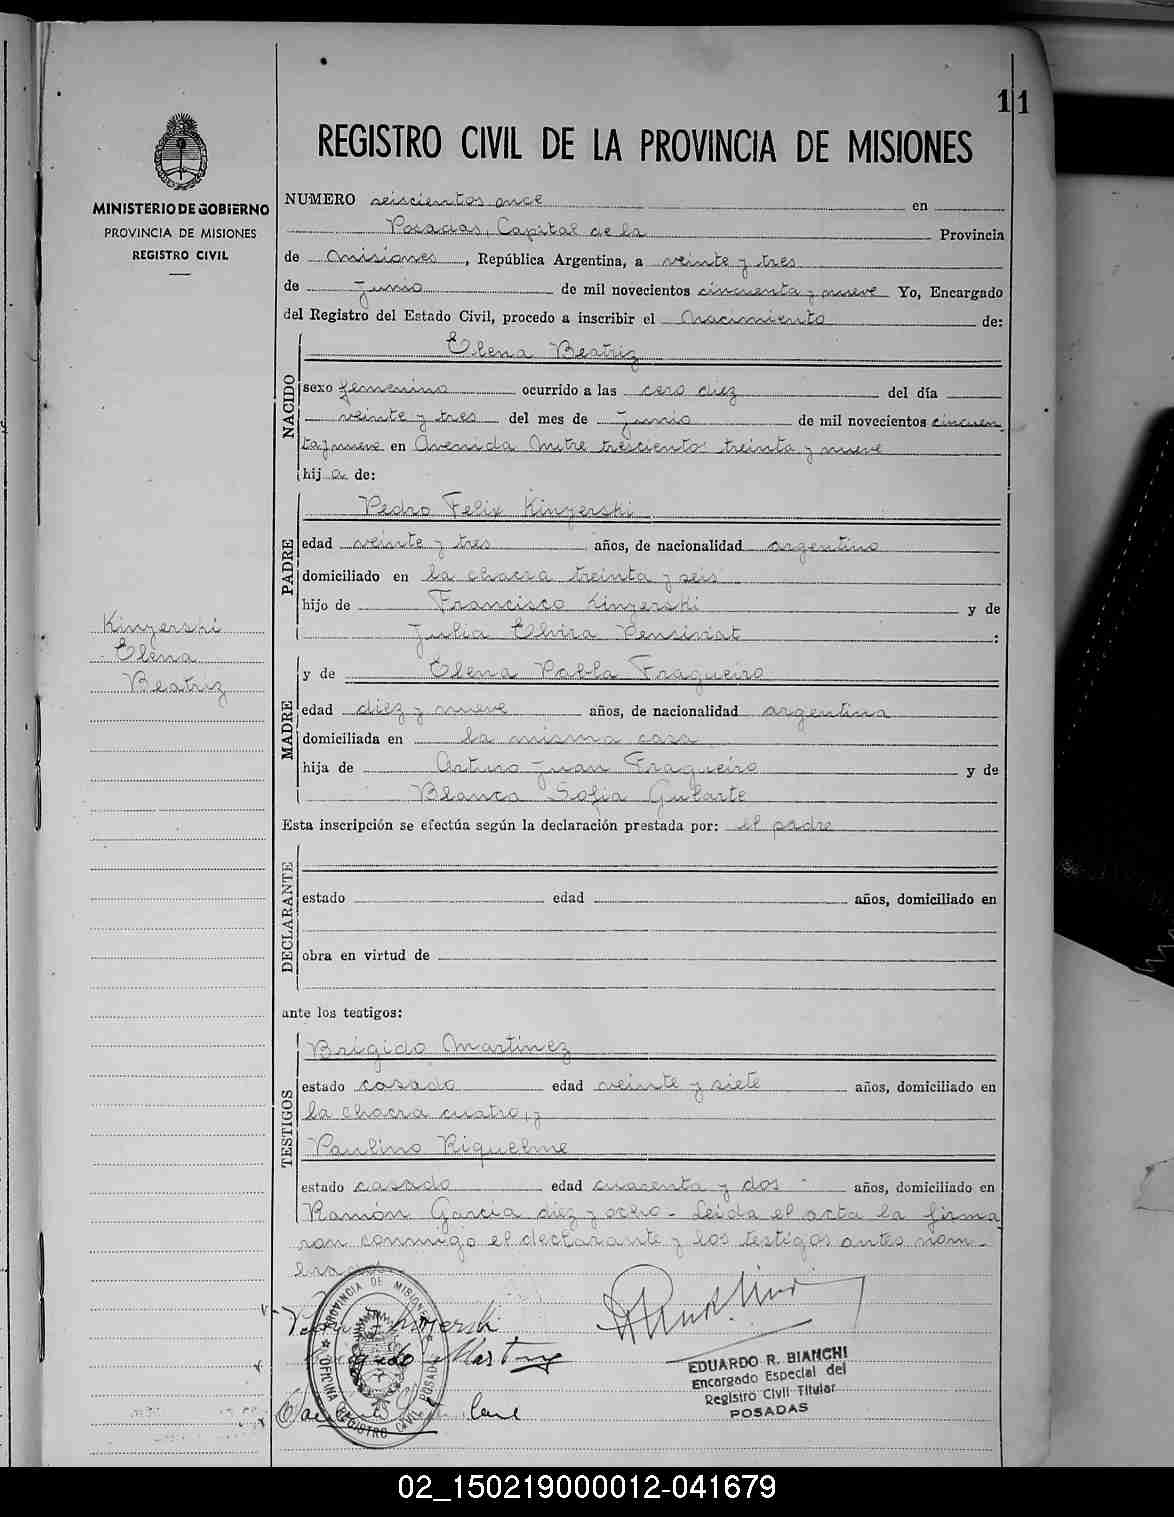 11
REGISTRO CIVIL DE LA PROVINCIA DE MISIONES
MINISTERIO DE GOBIERNO
PROVINCIA DE MISIONES
REGISTRO CIVIL
NUMERO seiscientos once en
Posadas, Capital de la Provincia
de Misiones, República Argentina, a veinte y tres
de Junio de mil novecientos cincuenta y nueve Yo, Encargado
del Registro del Estado Civil, procedo a inscribir el Nacimiento de:
NACIDO
Elena Beatriz
sexo femenino ocurrido a las cero diez del día
veinte y tres del mes de Junio de mil novecientos cincuen
ta y nueve en Avenida Mitre trescientos treinta y nueve
hij a de:
PADRE
Pedro Felix Kinzerski
edad veinte y tres años, de nacionalidad argentino
domiciliado en la chacra treinta y seis
hijo de Francisco Kinzerski y de
Julia Elvira :
Kinzerski
Elena
Beatriz
MADRE
y de Elena Pabla Fragueiro
edad diez y nueve años, de nacionalidad argentina
domiciliada en la misma casa
hija de Arturo Juan Fragueiro y de
Blanca Sofia Gularte
Esta inscripción se efectúa según la declaración prestada por: el padre
DECLARANTE
estado edad años, domiciliado en
obra en virtud de
ante los testigos:
TESTIGOS
Brigido Martinez
estado casado edad veinte y siete años, domiciliado en
la chacra cuatro, y
Paulino Riquelme
estado casado edad cuarenta y dos años, domiciliado en
Ramón Garcia diez y ocho - Leida el acta la firma
ron conmigo el declarante y los testigos antes nom-
brados
PROVINCIA DE MISIONES
OFICINA REGISTRO CIVIL POSADAS
EDUARDO R. BIANCHI
Encargado Especial del
Registro Civil Titular
POSADAS
02_150219000012-041679